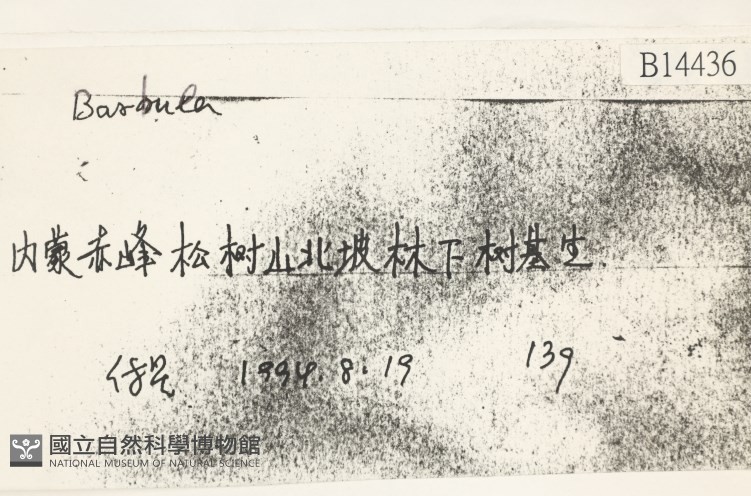 B14436
Barbula
内蒙赤峰松树山北坡林下树基生
1994.8.19 139
國立自然科學博物館
NATIONAL MUSEUM OF NATURAL SCIENCE